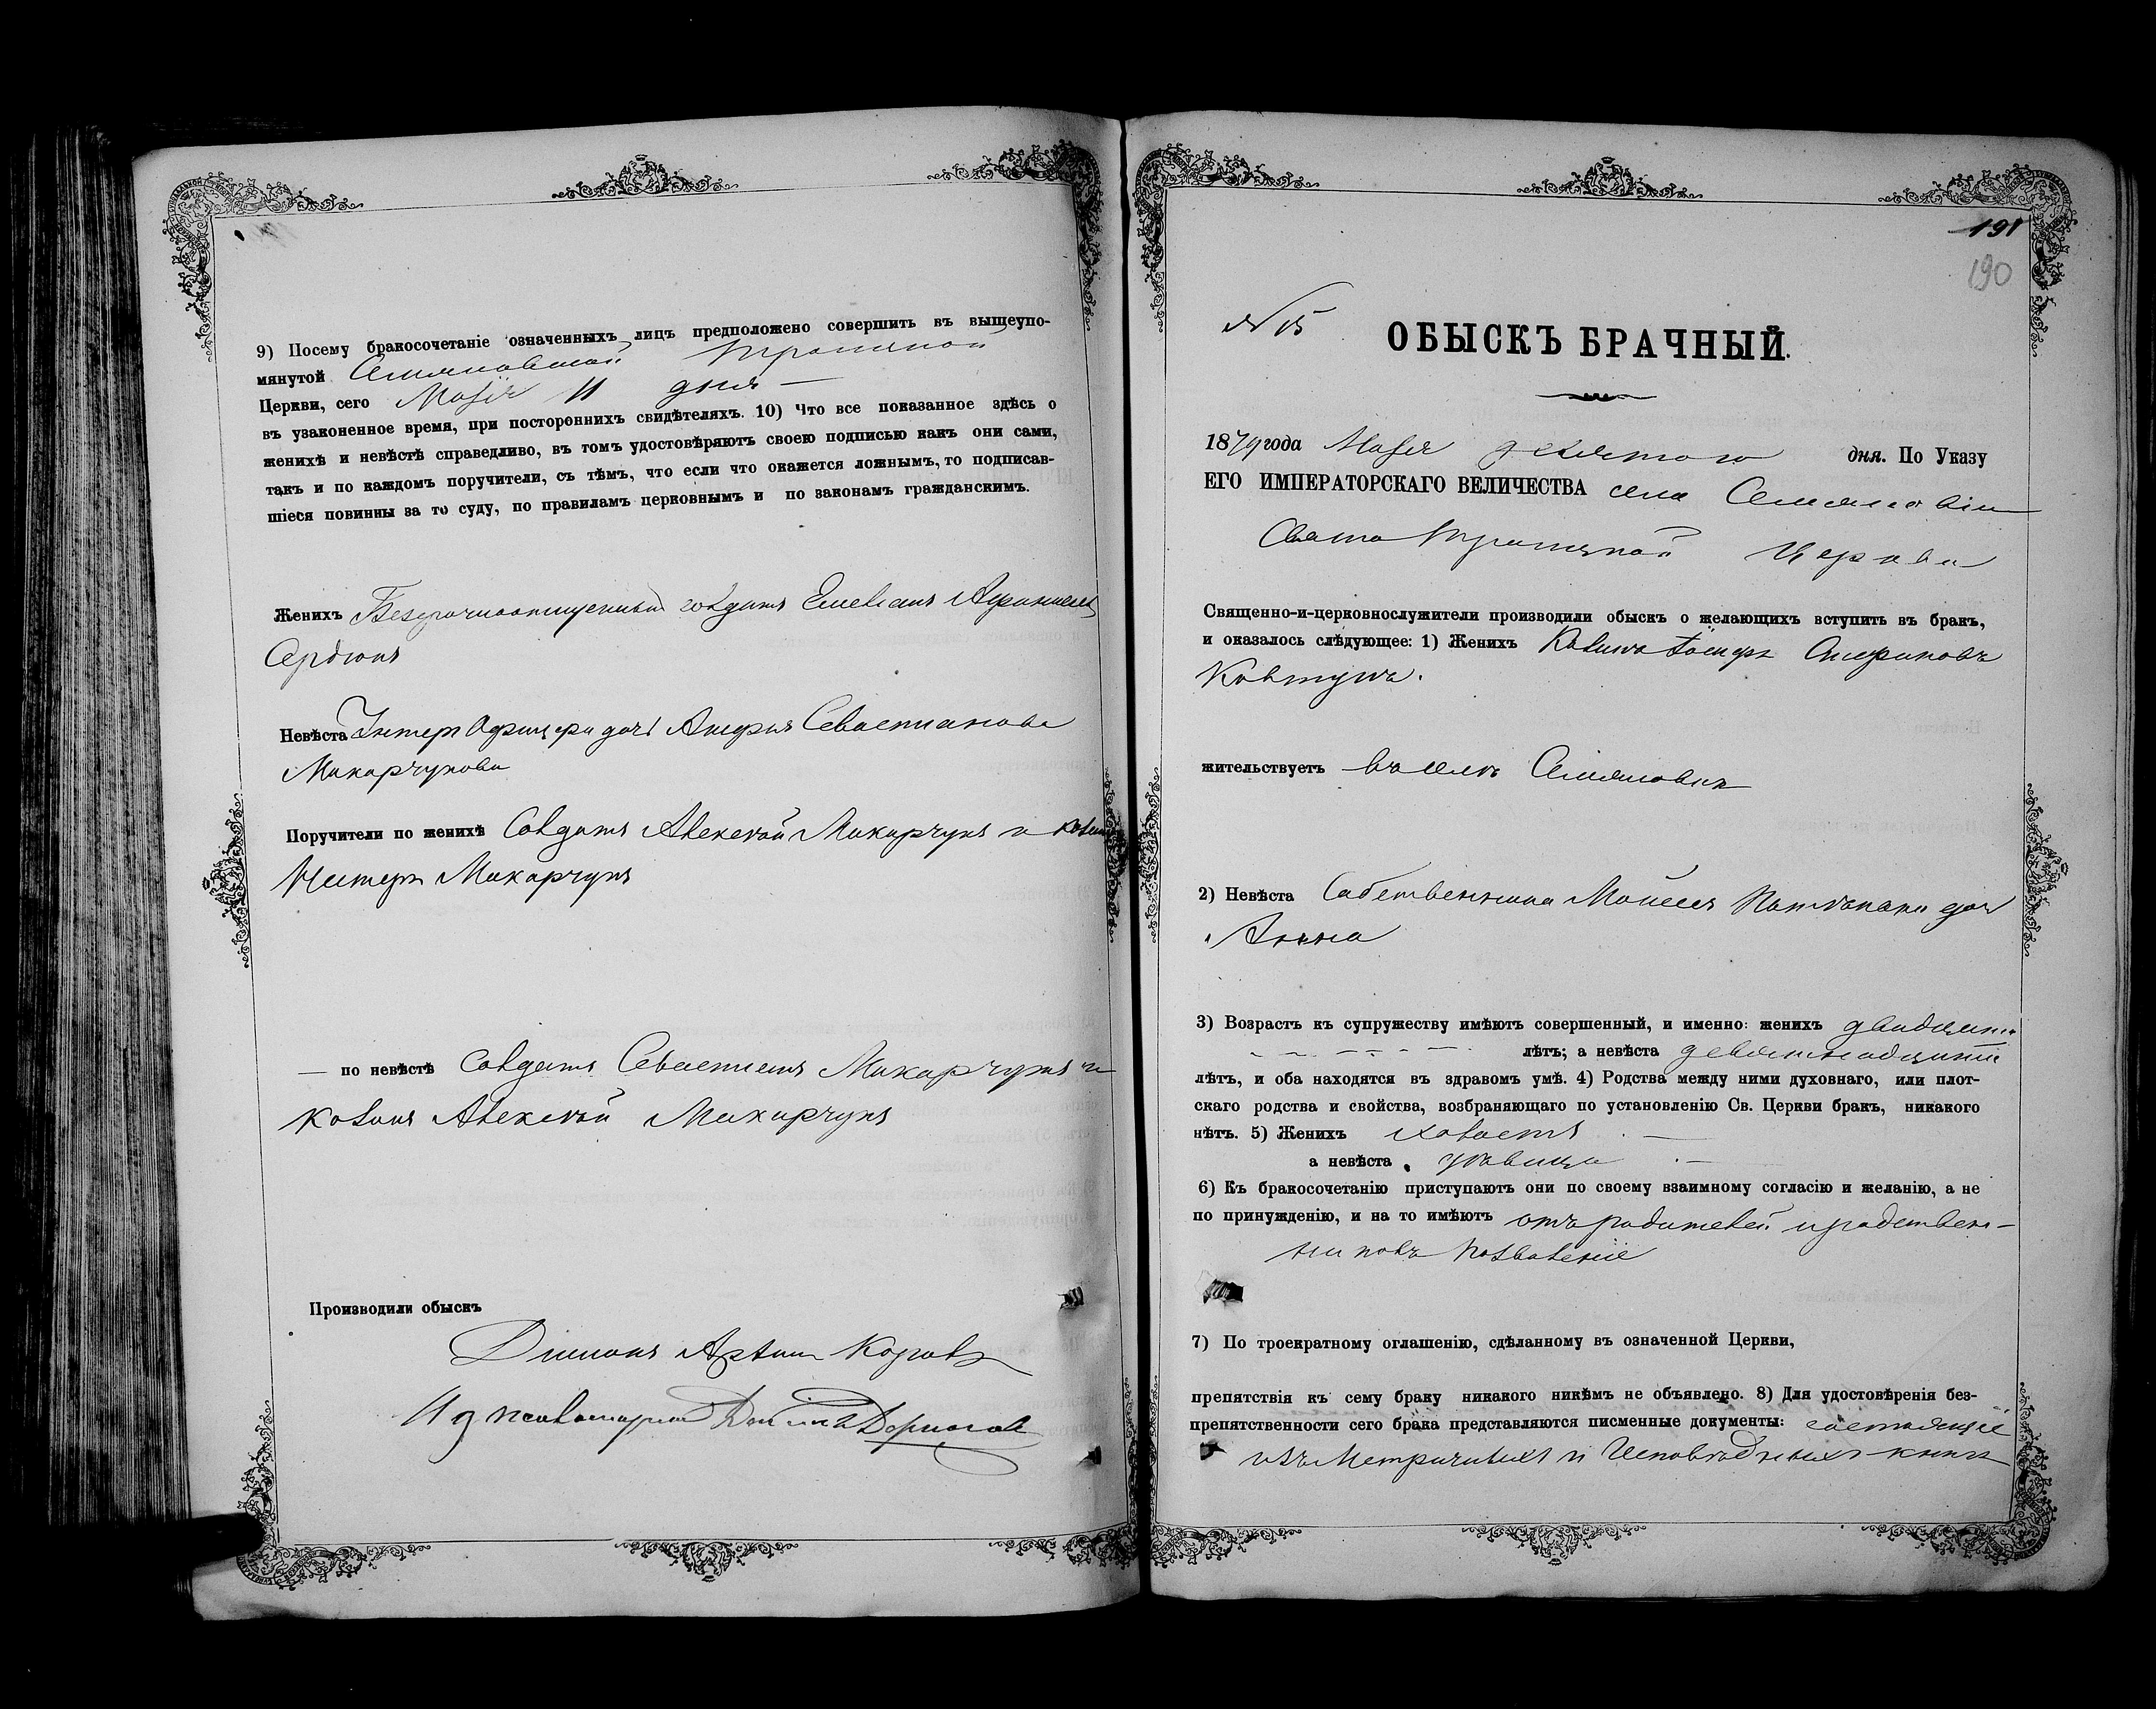 9) Посему бракосочетаніе означенныхъ лицъ предположено совершить въ вышеупо-
мянутой Троицкой
Церкви, сего 11 дня —
въ узаконенное время, при постороннихъ свидѣтеляхъ. 10) Что все показанное здѣсь о
женихѣ и невѣстѣ справедливо, въ томъ удостовѣряютъ своею подписью какъ они сами,
такъ и по каждомъ поручители, съ тѣмъ, что если что окажется ложнымъ, то подписав-
шіеся повинны за то суду, по правиламъ церковнымъ и по законамъ гражданскимъ.
Женихъ солдатъ Емеліанъ
Сердюкъ
Невѣста Унтеръ Офицера дочь Севастианова
Макарчукова
Поручители по женихѣ Солдатъ Алексѣй Макарчукъ и
Макарчукъ
— по невѣстѣ Солдатъ Севастіанъ Макарчукъ и
козакъ Алексѣй Макарчукъ
Производили обыскъ
191
190
N 15
ОБЫСКЪ БРАЧНЫЙ.
1879 года десятого дня. По Указу
ЕГО ИМПЕРАТОРСКАГО ВЕЛИЧЕСТВА села
Свято Троицкой Церкви
Священно-и-церковнослужители производили обыскъ о желающихъ вступить въ бракъ,
и оказалось слѣдующее: 1) Женихъ
Ковтунъ.
жительствуетъ въ селѣ
2) Невѣста Моисея дочь
Анна
3) Возрастъ къ супружеству имѣютъ совершенный, и именно: женихъ двадцати
лѣтъ; а невѣста девятнадцати
лѣтъ, и оба находятся въ здравомъ умѣ. 4) Родства между ними духовнаго, или плот-
скаго родства и свойства, возбраняющаго по установленію Св. Церкви бракъ, никакого
нѣтъ. 5) Женихъ холостъ —
а невѣста дѣвица —
6) Къ бракосочетанію приступаютъ они по своему взаимному согласію и желанію, а не
по принужденію, и на то имѣютъ отъ родителей и родствен-
никовъ позволеніе
7) По троекратному оглашенію, сдѣланному въ означенной Церкви,
препятствія къ сему браку никакого никѣмъ не объявлено. 8) Для удостовѣренія без-
препятственности сего брака представляются писменные документы:
изъ Метричныхъ и Исповѣдныхъ книгъ